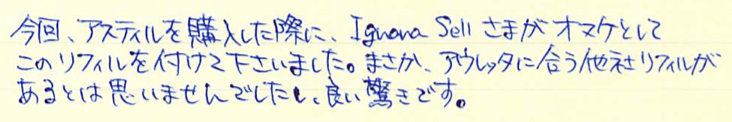 今回、アスティルを購入した際に、Iguana Sell さまがオマケとして
このリフィルを付けて下さいました。まさか、アウレッタに合う他社リフィルが
あるとは思いませんでしたし、良い驚きです。